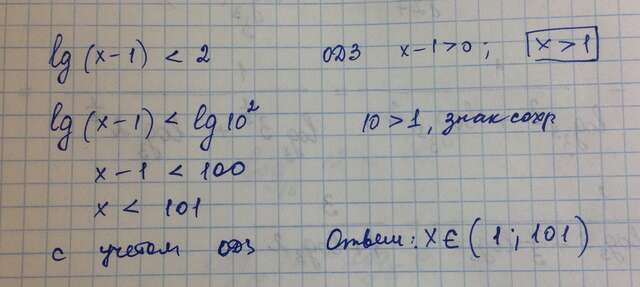 lg (x-1) < 2 ОДЗ x-1>0; x>1
lg (x-1) < lg 10² 10>1, знак сохр
x-1 < 100
x < 101
с учетом ОДЗ Ответ: X∈(1; 101)